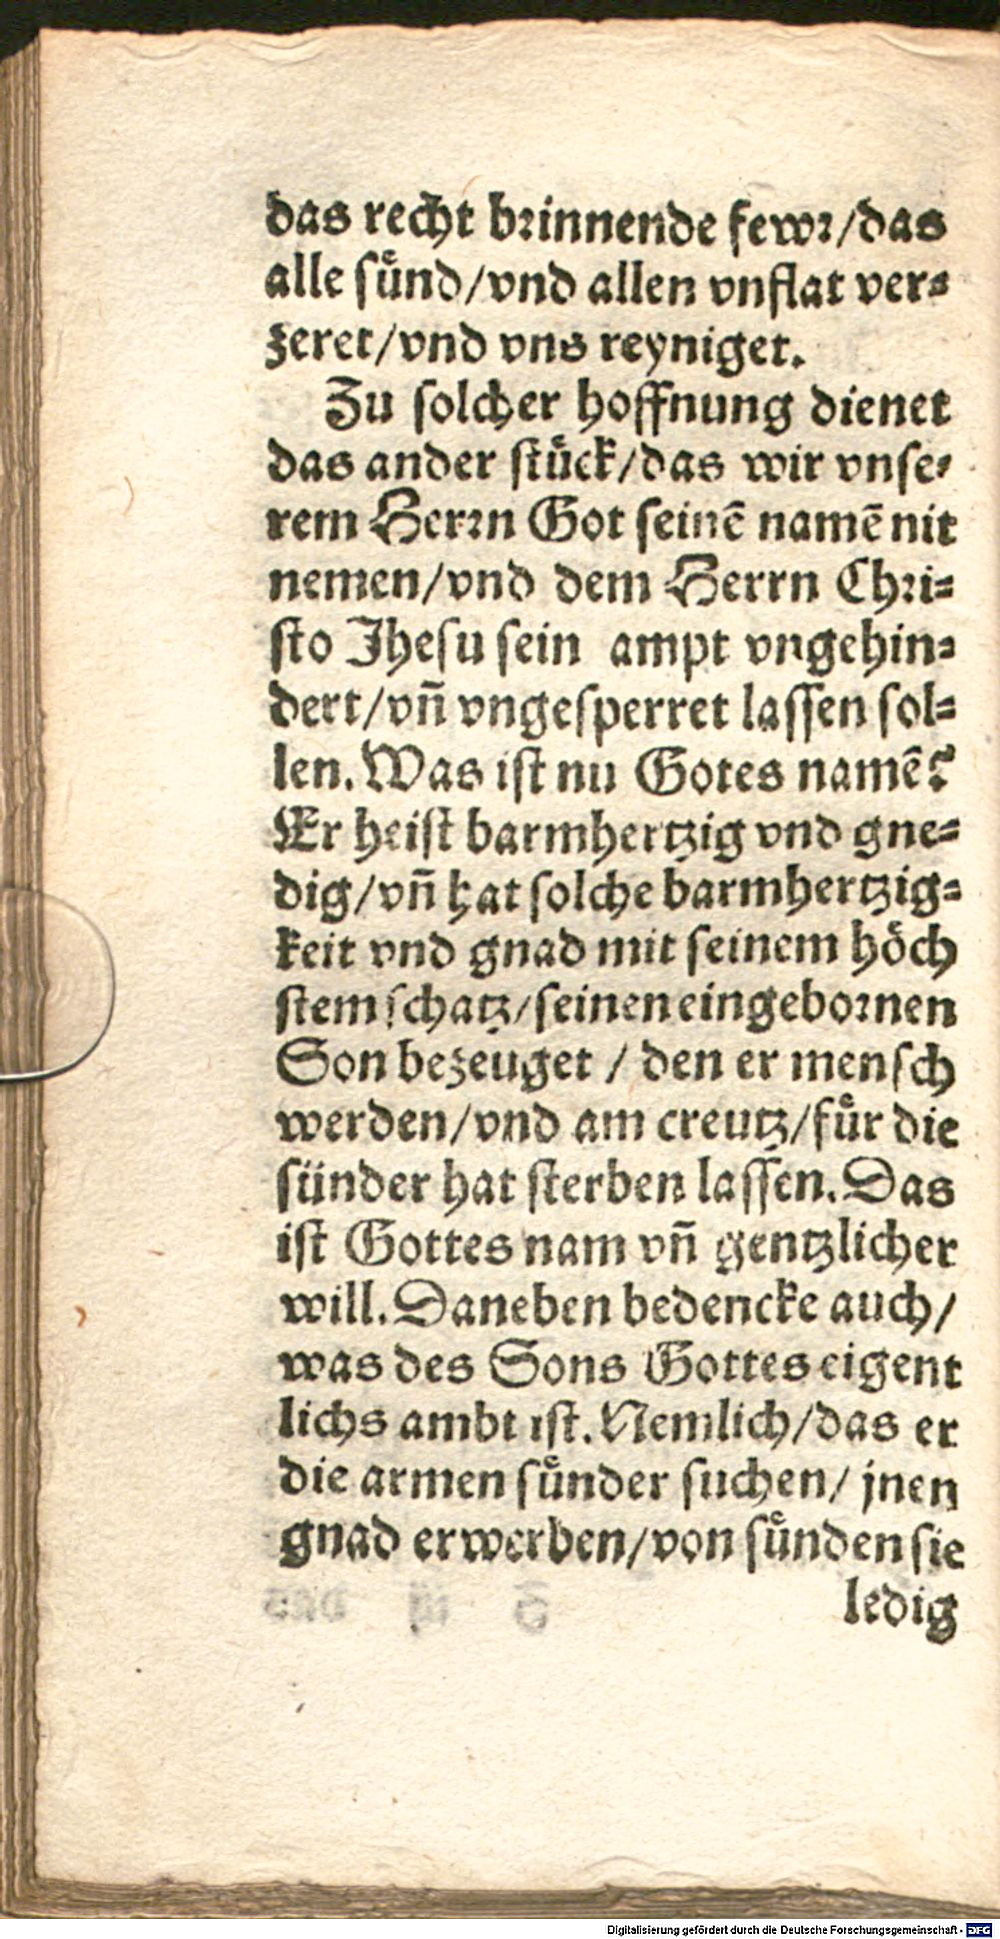 das recht brinnende fewr/das
alle suͤnd/vnd allen vnflat ver⸗
zeret/vnd vns reyniget.
Zu solcher hoffnung dienet
das ander stuͤck/das wir vnse⸗
rem Herrn Got seinẽ namẽ nit
nemen/vnd dem Herrn Chri⸗
sto Jhesu sein ampt vngehin⸗
dert/vñ vngesperret lassen sol⸗
len. Was ist nu Gotes namẽ?
Er heist barmhertzig vnd gne⸗
dig/vñ hat solche barmhertzig⸗
keit vnd gnad mit seinem hoͤch
stem schatz/seinen eingebornen
Son bezeuget / den er mensch
werden/vnd am creutz/fuͤr die
sünder hat sterben lassen. Das
ist Gottes nam vñ gentzlicher
will. Daneben bedencke auch/
was des Sons Gottes eigent
lichs ambt ist. Nemlich/das er
die armen suͤnder suchen/ jnen
gnad erwerben/von suͤnden sie
ledig
Digitalisierung gefördert durch die Deutsche Forschungsgemeinschaft - DFG